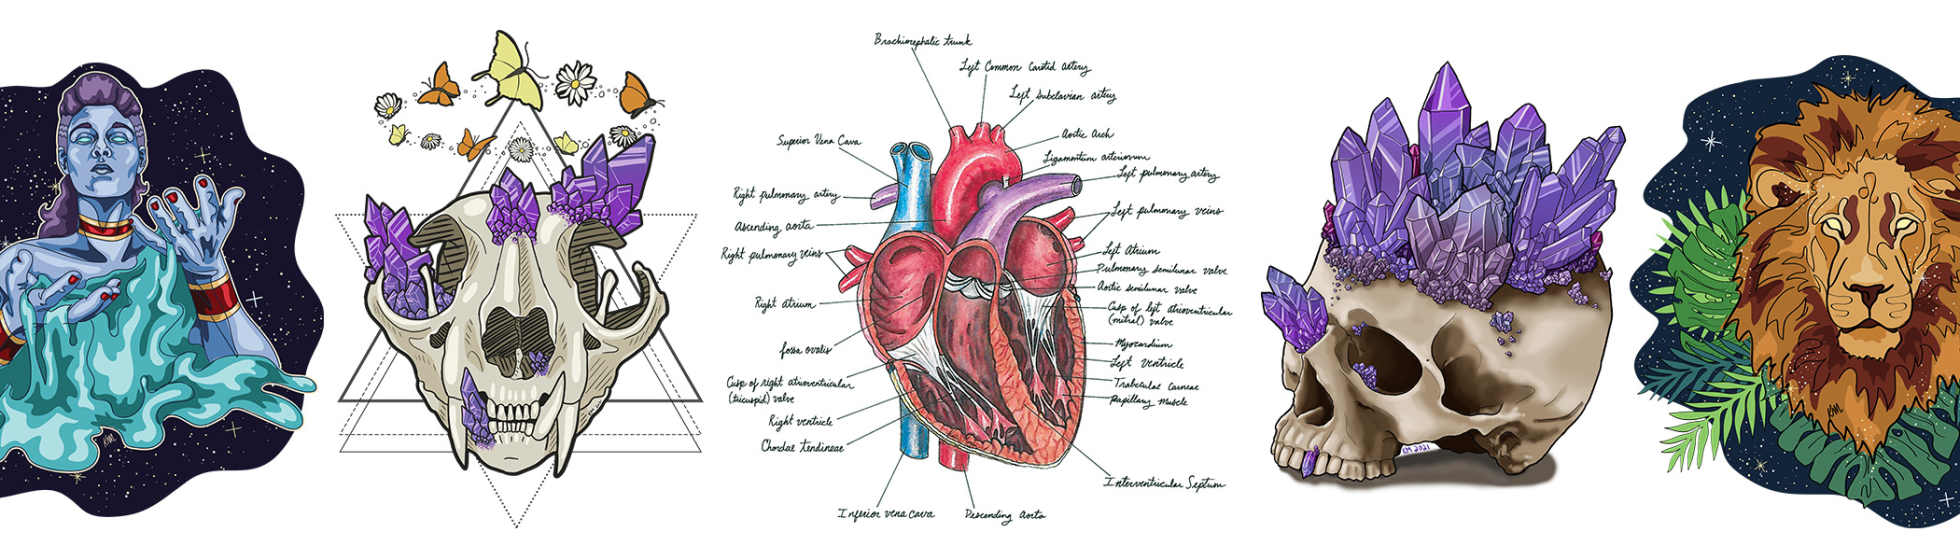 Brachiocephalic trunk
Left Common Carotid artery
Left subclavian artery
Aortic Arch
Ligamentum arteriosum
Left pulmonary artery
Left pulmonary veins
Left Atrium
Pulmonary semilunar valve
Aortic semilunar valve
Cusp of left atrioventricular
(mitral) valve
Myocardium
Left Ventricle
Trabeculae carneae
Papillary muscle
Interventricular Septum
Superior Vena Cava
Right pulmonary artery
Ascending aorta
Right pulmonary veins
Right atrium
fossa ovalis
Cusp of right atrioventricular
(tricuspid) valve
Right ventricle
Chordae Tendineae
Inferior vena cava
Descending Aorta
KM 2021
KM
KM